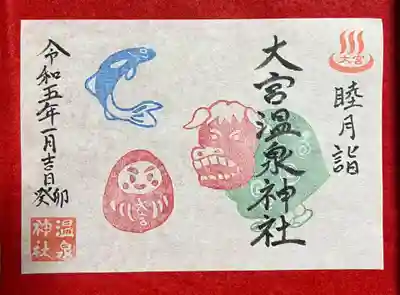 大宮
睦月詣
大宮温泉神社
大宮
令和五年一月吉日
癸卯
温泉
神社